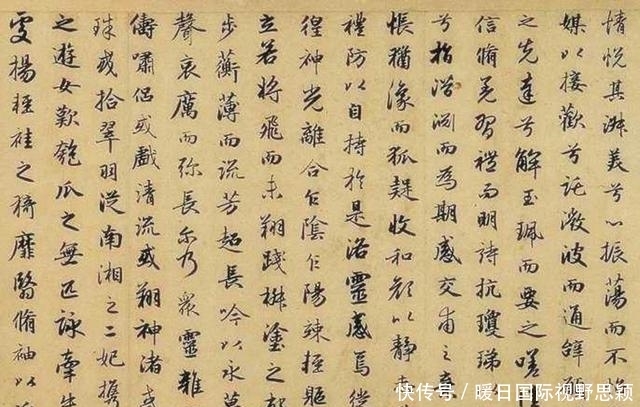 情悦其淑美兮心振蕩而不怡
媒以接歡兮託微波而通辭
之先達兮解玉珮而要之嗟
信脩羌習禮而明詩抗瓊珶
兮指潛淵而為期感交甫之棄
悵猶豫而狐疑收和顏以靜志
禮防以自持於是洛靈感焉徙
徨神光離合乍陰乍陽竦輕軀
立若將飛而未翔踐椒塗之郁
步蘅薄而流芳超長吟以永慕
聲哀厲而彌長爾乃眾靈雜
儔嘯侶或戲清流或翔神渚或
珠或拾翠羽從南湘之二妃攜
之遊女歎匏瓜之無匹詠牽牛
處揚輕袿之猗靡翳脩袖以
快传号/暖日国际视野思颖